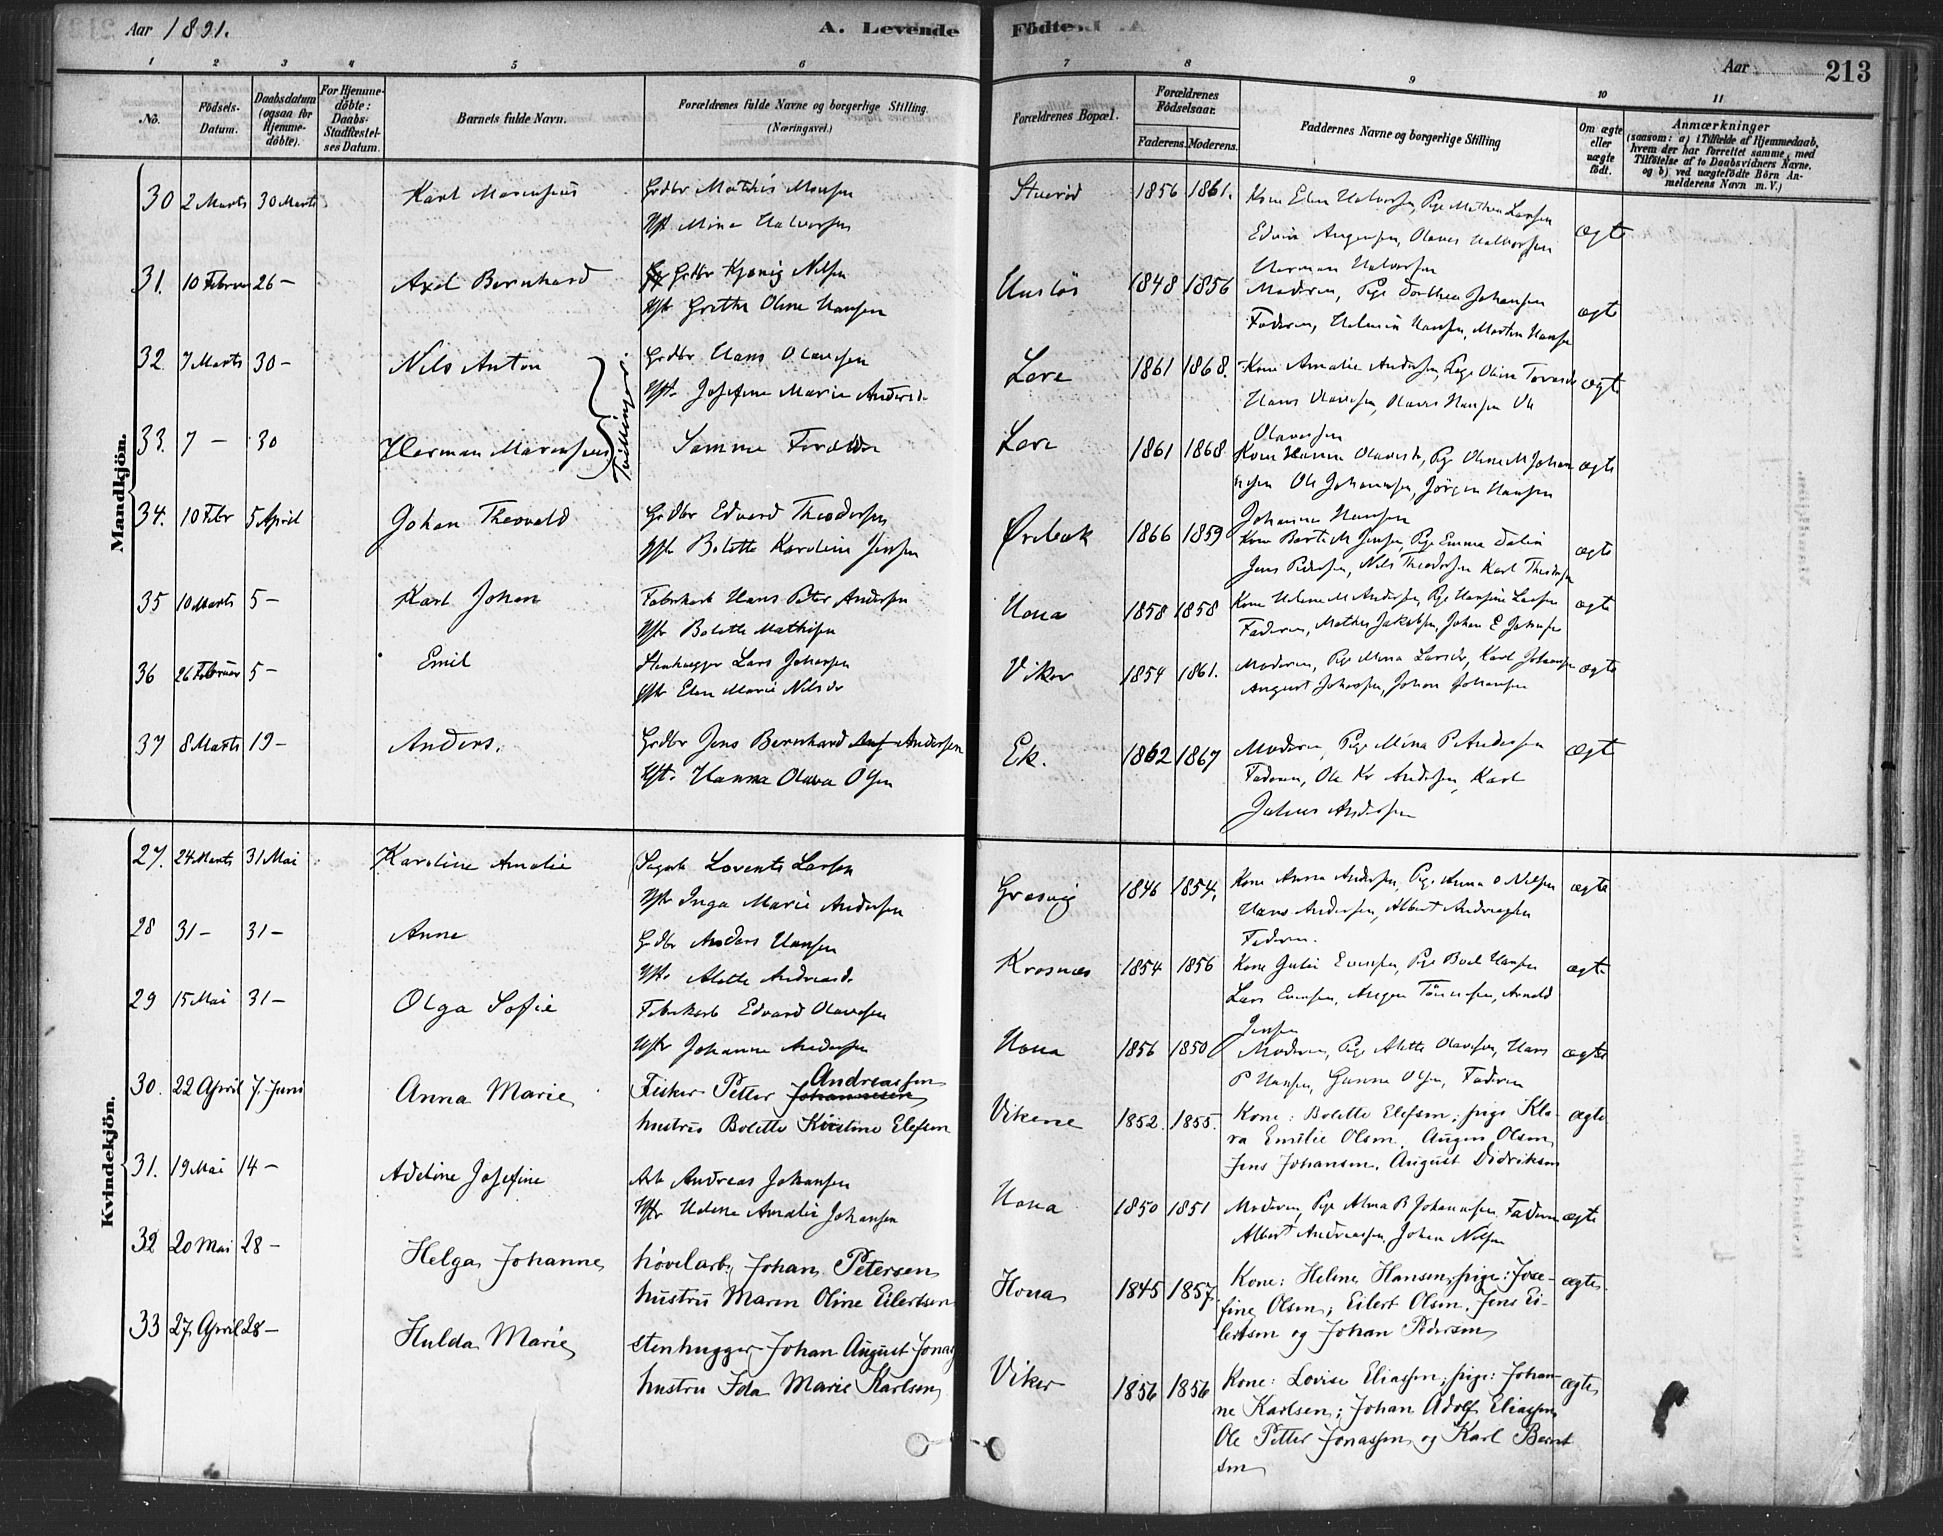 Aar 1891. A. Levende Födte. Aar 213
1 2 3 4 5 6 7 8 9 10 11
No.
Födsels-Datum.
Daabsdatum (ogsaa for Hjemme-döbte).
For Hjemme-döbte: Daabs-Stadfæstel-ses Datum.
Barnets fulde Navn.
Forældrenes fulde Navne og borgerlige Stilling. (Næringsvei.)
Forældrenes Bopæl.
Forældrenes Födselsaar.
Faderens. Moderens.
Faddernes Navne og borgerlige Stilling
Om ægte eller uægte födt.
Anmærkninger
(saasom: a) i Tilfælde af Hjemmedaab,
hvem der har forrettet samme, med
Tilföielse af to Daabsvidners Navne,
og b) ved uægtefödte Börn An-
melderens Navn m. V.)
Mandkjön.
30 2 Marts 30 Marts Karl Marensius Grdbr Mathis Monsen 1856 1861. Kone Elen Halvorsen, Pige Mathea Larsen ægte
Hst Mina Halvorsen Edvin Angensen, Olaves Halvorsen
Herman Halvorsen
31. 10 Februar 26 – Axel Bernhard Grdbr Kjønig Nilsen 1848 1856 Moderen, Pige Dorthea Johansen ægte
Hstr Grethe Oline Hansen Faderen, Helmin Hansen, Martin Hansen
32 7 Marts 30 – Nils Anton Grdbr Hans Olavesen Lere 1861 1868. Kone Amalie Andersen, Pige Oline ægte
Hst. Josefine Marie Andersd. Hans Olavesen, Olaves Hansen Ole
Olavesen
Tvillinger
33. 7 – 30 Herman Marensius Samme Forældre Lere 1861 1868 Kone Hanna Olavesd, Pige Oline M Johan ægte
nesen Ole Johannesen, Jörgen Hansen
Johannes Hansen
34. 10 Febr 5 April Johan Theovald Grdbr Edvard Theodorsen Ørebæk 1866 1859 Kone Berte M Jensen, Pige Emma Dalin ægte
Hstr Bolette Karoline Jensen Jens Pedersen, Nils Theodorsen Karl Theodorsen
35 10 Marts 5 – Karl Johan Fabrikarb Hans Peter Andersen Hona 1858 1858 Kone Helene M Andersen, Pige Hansine Larsen ægte
Hstr Bolette Mathisen Faderen, Mathias Jakobsen, Johan E Johnsen
36 26 Februar 5 – Emil Stenhugger Lars Johansen Viker 1854 1861. Moderen, Pige Mina Larsdr, Karl Johansen ægte
Hstr Elen Marie Nilsdr August Johansen, Johan Johansen
37 8 Marts 19 – Anders. Grdbr Jens Bernhard Andersen Ek. 1862 1867 Moderen, Pige Mina P Andersen ægte
Hst. Hanna Olava Olsen Faderen, Ole Kr Andersen, Karl
Julius Andersen
Kvindekjön.
27. 24 Marts 31 Mai Karoline Amalie Sagarb Lorents Larsen Gresvig 1846 1854. Kone Anna Andersen, Pige Anna O Nilsen ægte
Hstr Inga Marie Andersen Hans Andersen, Albert Andreassen
Faderen.
28 31 – 31 – Anne Grdbr Anders Hansen Krosnæs 1854 1856 Kone Julie Evensen, Pige Boel Hansen ægte
Hst. Alette Andreasd. Lars Evensen, Arnold
Jensen
29 15 Mai 31 – Olga Sofie Fabrikarb Edvard Olavesen Hona 1856 1850 Moderen, Pige Alette Olavesen, Hans ægte
Hstr Johanne Andersen P Hansen, Gunne Olsen, Faderen
30. 22 April 7. Juni Anna Marie Fisker Petter Johannesen Andreassen Vikene 1852. 1855. Kone: Bolette Elefsen; pige Kla- ægte
hustru Bolette Kristine Elefsen ra Emilie Olsen, August Olsen,
Jens Johansen, August Didriksen
31. 19 Mai 14 – Adeline Josefine Arb Andreas Johansen Hona 1850 1851 Moderen, Pige Alma B Johannesen, Faderen ægte
Hstr Helene Amalie Johansen Albert Andreassen, Johan Nilsen
32 20 Mai 28 – Helga Johanne høvelarb. Johan Petersen Hona 1845 1857. Kone: Helene Hansen; pige: Jose- ægte
hustru Maren Oline Eilertsen fine Olsen; Eilert Olsen, Jens Ei-
lertsen og Johan Pedersen
33 27 April 28 – Hulda Marie Stenhugger Johan August Jonas Viker 1856 1856 Kone: Lovise Eliassen; pige: Johan- ægte
hustru Ida Marie Karlsen ne Karlsen; Johan Adolf Eliassen
Ole Petter Jonassen og Karl Bernt
sen